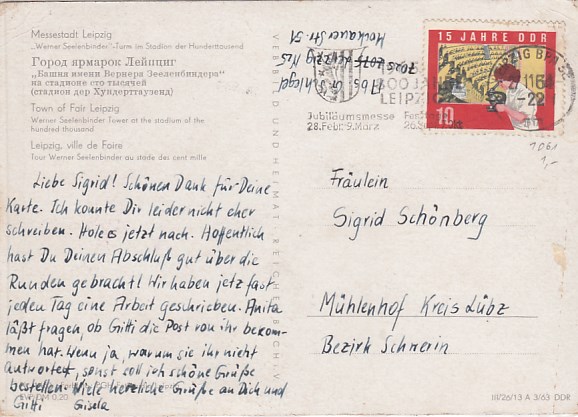 Messestadt Leipzig
„Werner Seelenbinder"-Turm im Stadion der Hunderttausend
Город ярмарок Лейпциг
„Башня имени Вернера Зееленбиндера"
на стадионе сто тысячей
(стадион дер Хундерттаузенд)
Town of Fair Leipzig
Werner Seelenbinder Tower at the stadium of the
hundred thousand
Leipzig, ville de Foire
Tour Werner Seelenbinder au stade des cent mille
Liebe Sigrid! Schönen Dank für Deine
Karte. Ich konnte Dir leider nicht eher
schreiben. Hole es jetzt nach. Hoffentlich
hast Du Deinen Abschluß gut über die
Runden gebracht! Wir haben jetzt fast
jeden Tag eine Arbeit geschrieben. Anita
läßt fragen, ob Gitti die Post von ihr bekom-
men hat. Wenn ja, warum sie ihr nicht
antwortet, sonst soll ich schöne Grüße
bestellen. Viele herzliche Grüße an Dich und
Gitti Gisela
EVP DM 0.20
VERBILD UND HEIMAT REICHENBACH I. V.
Abs. G. Schlegel
7025 Leipzig N25
Mockauer Str. 51
15 JAHRE DDR
10
LEIPZIG BPA
1164
-22
800 JA
LEIPZ
Jubiläumsmesse
28. Febr.-9. März
1061
1,-
Fräulein
Sigrid Schönberg
Mühlenhof Kreis Lübz
Bezirk Schwerin
III/26/13 A 3/63 DDR